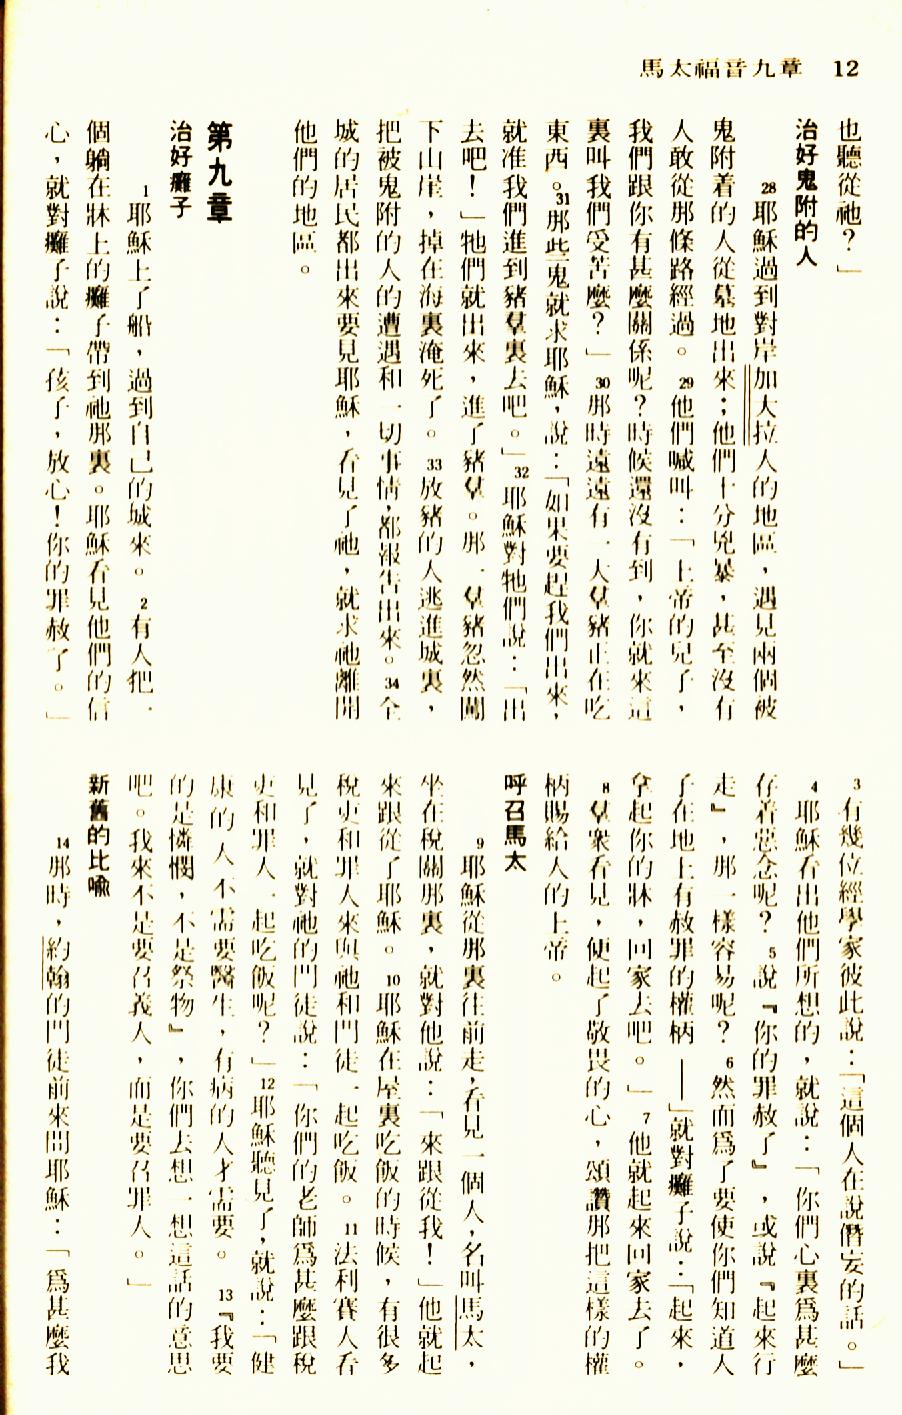 馬太福音九章　12
也聽從祂？」
治好鬼附的人
28耶穌過到對岸加大拉人的地區，遇見兩個被
鬼附着的人從墓地出來；他們十分兇暴，甚至沒有
人敢從那條路經過。29他們喊叫：「上帝的兒子，
我們跟你有甚麼關係呢？時候還沒有到，你就來這
裏叫我們受苦麼？」30那時遠遠有一大羣豬正在吃
東西。31那些鬼就求耶穌，說：「如果要趕我們出來，
就准我們進到豬羣裏去吧。」32耶穌對牠們說：「出
去吧！」牠們就出來，進了豬羣。那一羣豬忽然闖
下山崖，掉在海裏淹死了。33放豬的人逃進城裏，
把被鬼附的人的遭遇和一切事情，都報告出來。34全
城的居民都出來要見耶穌，看見了祂，就求祂離開
他們的地區。
第九章
治好癱子
1耶穌上了船，過到自己的城來。2有人把一
個躺在牀上的癱子帶到祂那裏。耶穌看見他們的信
心，就對癱子說：「孩子，放心！你的罪赦了。」
3有幾位經學家彼此說：「這個人在說僭妄的話。」
4耶穌看出他們所想的，就說：「你們心裏爲甚麼
存着惡念呢？5說『你的罪赦了』，或說『起來行
走』，那一樣容易呢？6然而爲了要使你們知道人
子在地上有赦罪的權柄——」就對癱子說：「起來，
拿起你的牀，回家去吧。」7他就起來回家去了。
8羣衆看見，便起了敬畏的心，頌讚那把這樣的權
柄賜給人的上帝。
呼召馬太
9耶穌從那裏往前走，看見一個人，名叫馬太，
坐在稅關那裏，就對他說：「來跟從我！」他就起
來跟從了耶穌。10耶穌在屋裏吃飯的時候，有很多
稅吏和罪人來與祂和門徒一起吃飯。11法利賽人看
見了，就對祂的門徒說：「你們的老師爲甚麼跟稅
吏和罪人一起吃飯呢？」12耶穌聽見了，就說：「健
康的人不需要醫生，有病的人才需要。13『我要
的是憐憫，不是祭物』，你們去想一想這話的意思
吧。我來不是要召義人，而是要召罪人。」
新舊的比喩
14那時，約翰的門徒前來問耶穌：「爲甚麼我